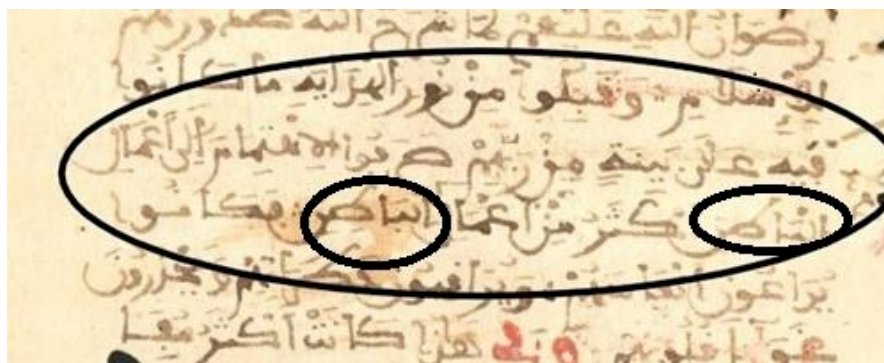 رضوان الله عليهم لما شرح الله صدورهم
للإسلام وقبلوا من نور الهداية ما كانوا
فيه على بينة من ربهم صرفوا الاهتمام إلى أعمال
الباطن أكثر من أعمال الباطن فكانوا
يراعون أنفاسهم ويراقبون
قلوبهم كانت أكثر